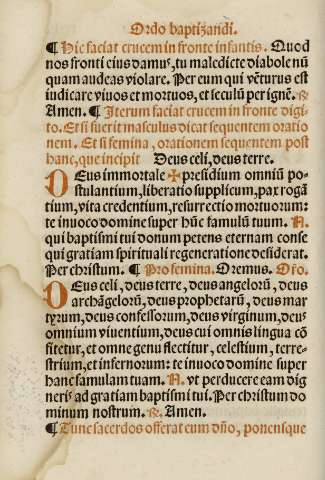 Ordo baptizandi.
¶ Hic faciat crucem in fronte infantis. Quod
nos fronti eius damus, tu maledicte diabole nū
quam audeas violare. Per eum qui vēturus est
iudicare viuos et mortuos, et seculū per ignē. ℞.
Amen. ¶ Iterum faciat crucem in fronte digi
to. Et si fuerit masculus dicat sequentem oratio
nem. Et si femina, orationem sequentem post
hanc, que incipit Deus celi, deus terre.
DEus immortale ✠ presidium omniū po-
stulantium, liberatio supplicum, pax rogā
tium, vita credentium, resurrectio mortuorum:
te inuoco domine super hūc famulū tuum. N.
qui baptismi tui donum petens eternam conse
qui gratiam spirituali regeneratione desiderat.
Per christum. ¶ Pro femina. Oremus. Oro.
DEus celi, deus terre, deus angelorū, deus
archāgelorū, deus prophetarū, deus mar
tyrum, deus confessorum, deus virginum, deus
omnium viuentium, deus cui omnis lingua cō
fitetur, et omne genu flectitur, celestium, terre-
strium, et infernorum: te inuoco domine super
hanc famulam tuam. N. vt perducere eam dig
neris ad gratiam baptismi tui. Per christum do
minum nostrum. ℞. Amen.
¶ Tunc sacerdos offerat eum dño, ponensque